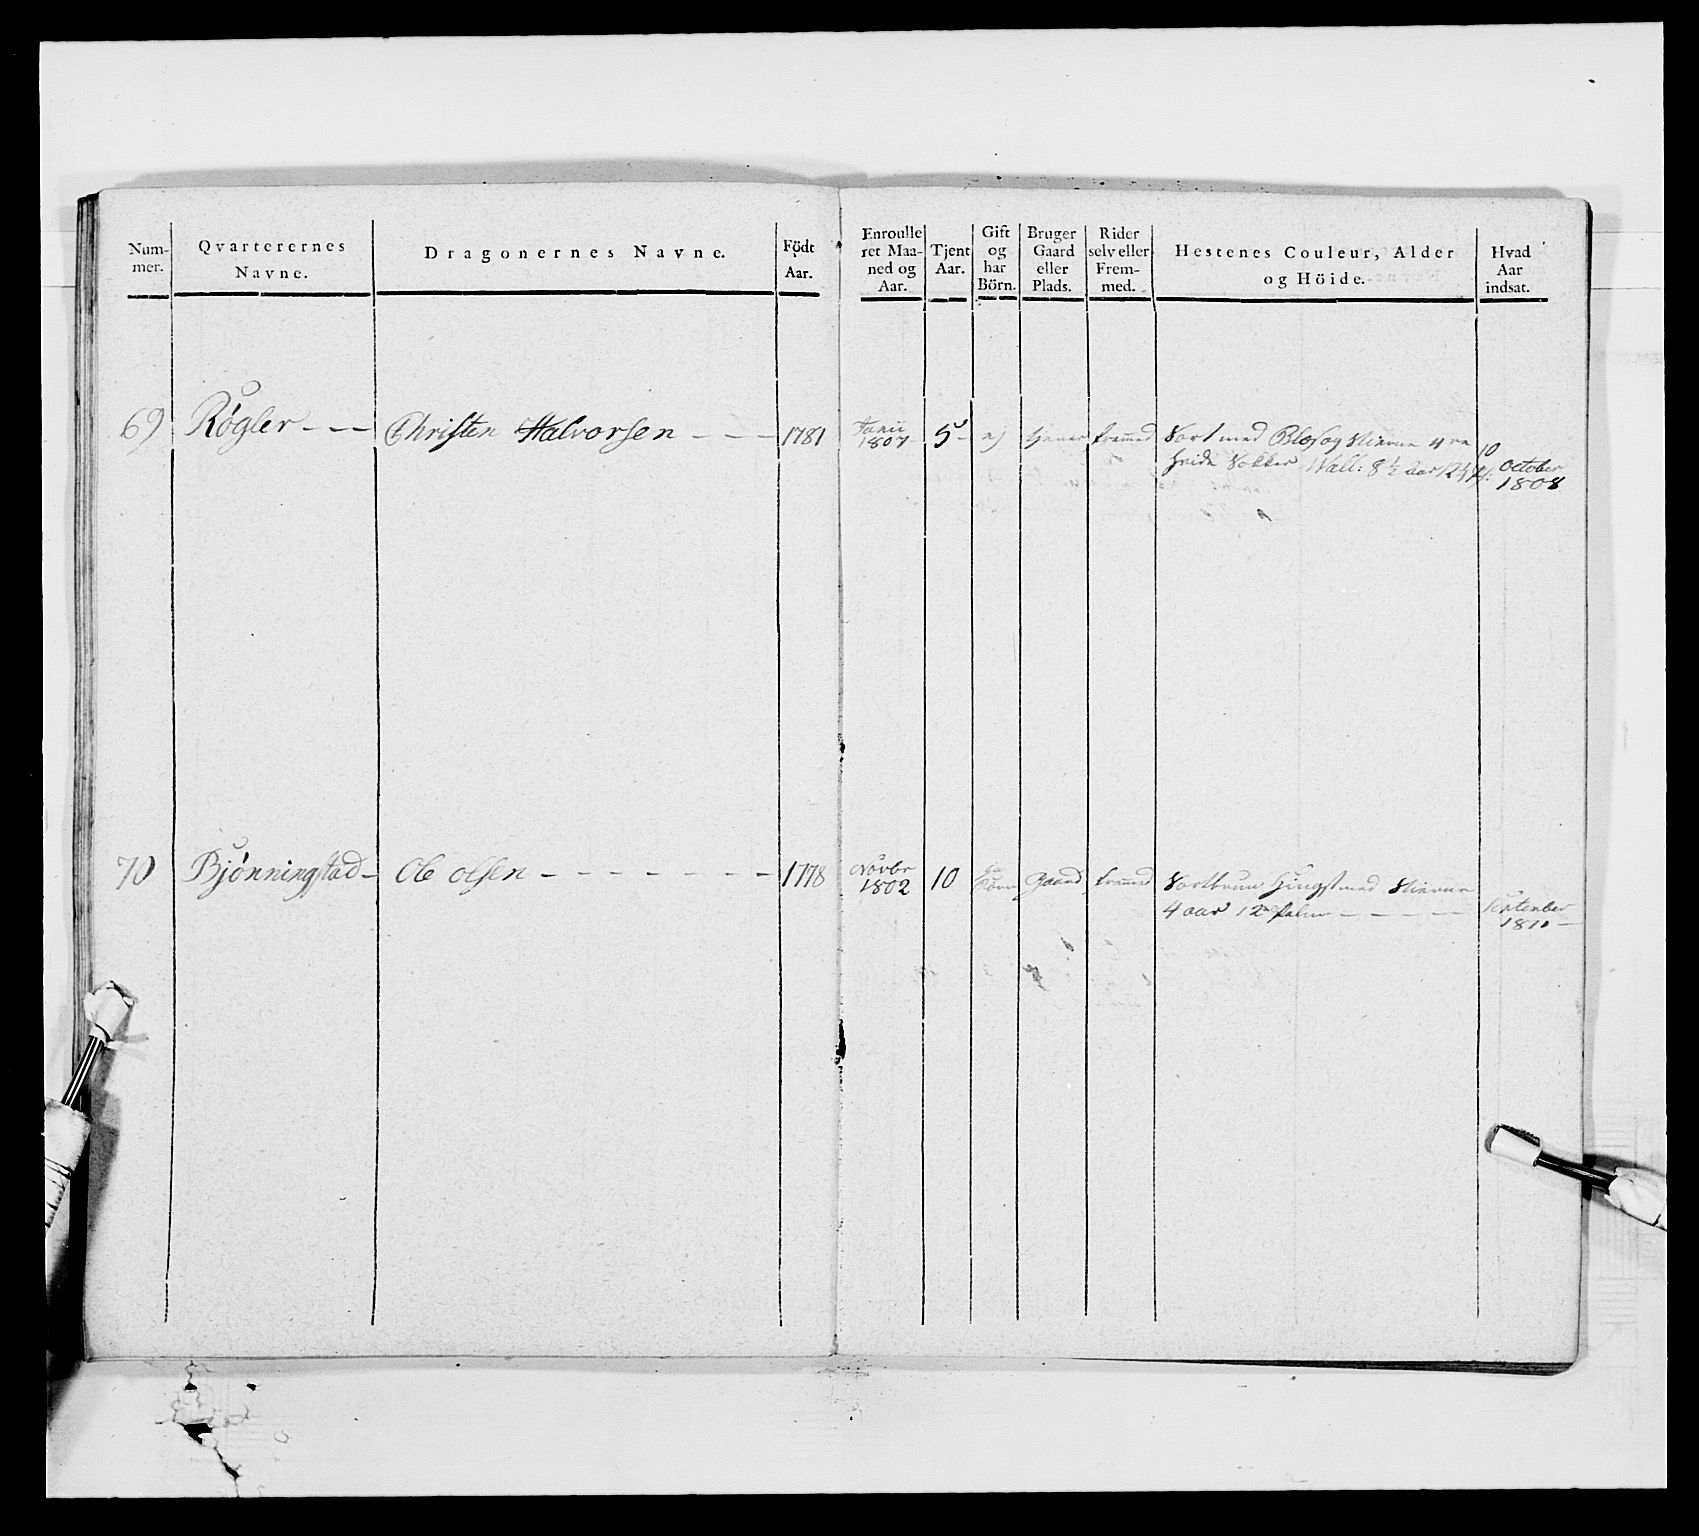 Num-
mer.
Qvarterernes
Navne.
Dragonernes Navne.
Födt
Aar.
Enroulle
ret Maa-
ned og
Aar.
Tjent
Aar.
Gift
og
har
Börn.
Bruger
Gaard
eller
Plads.
Rider
selv eller
Frem-
med.
Hestenes Couleur, Alder
og Höide.
Hvad
Aar
indsat.
69 Røgler - - - Christen Halvorsen - - - 1781
1807 5 ej tjener fremmed Sort med Blis og Stierne 4re
hvide Sokker Wall: 8 1/2 Aar
10
October
1808
70 Bjønningstad - Ole olsen - - - - - - - 1778
Novbr
1802 10 Børn Gaard fremmed Sortbrun Hingst med Stierne
4 aar 12 Palm - - - -
September
1810 -